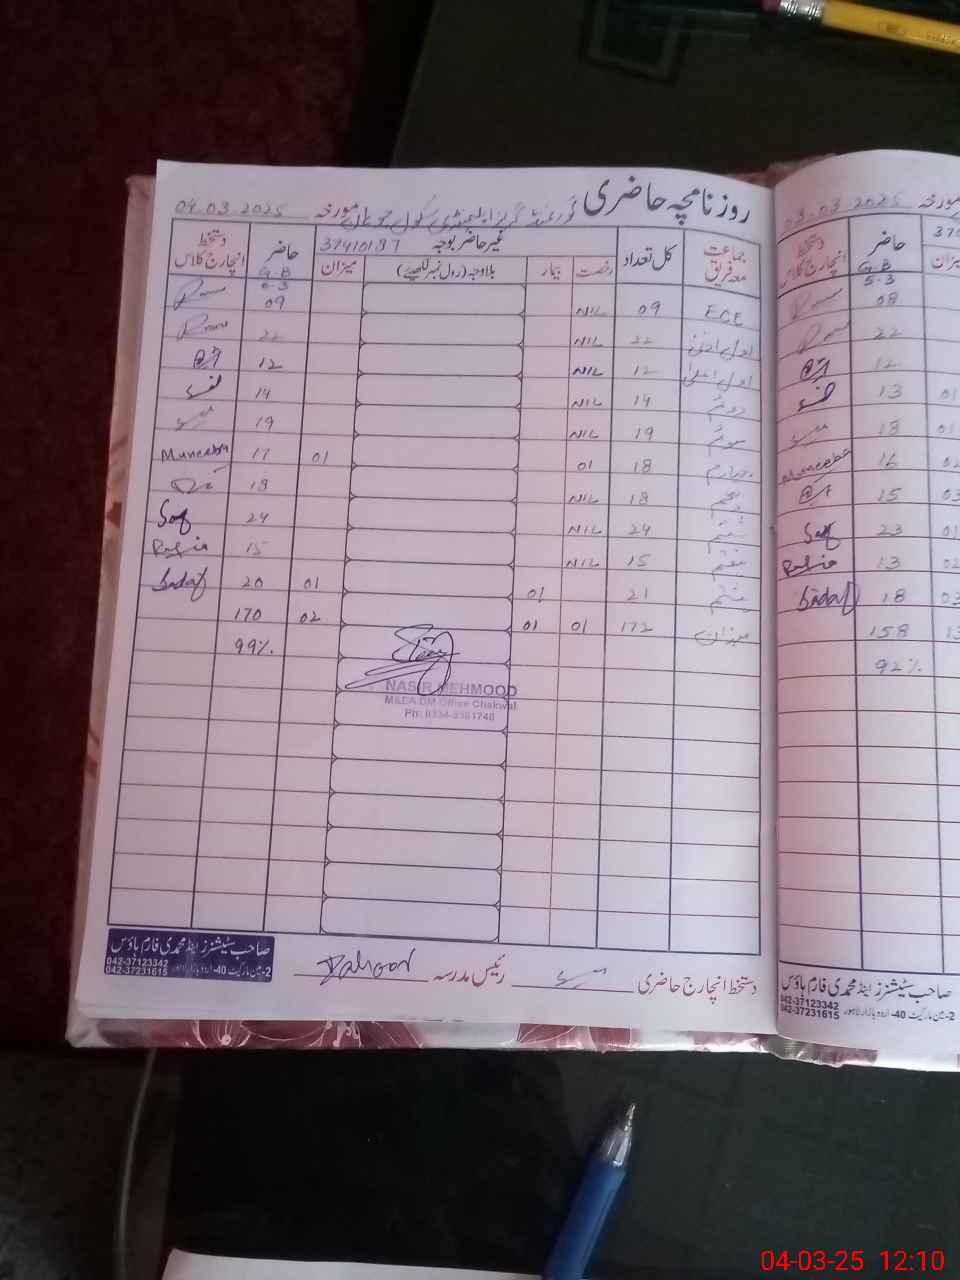 روزنامچہ حاضری
گورنمنٹ گرلز ایلیمنٹری سکول مورخہ 04.03.2025
جماعت معہ فریق کل تعداد غیر حاضر بوجہ 37410187 حاضر دستخط انچارج کلاس
رخصت بیمار بلاوجہ (رول نمبر لکھیئے) میزان G-B
5-3
ECE 09 NIL 09
اول ادنیٰ 22 NIL 22
اول اعلیٰ 12 NIL 12
دوئم 14 NIL 14
سوئم 19 NIL 19
چہارم 18 01 01 17 Muneeba
پنجم 18 NIL 18
ششم 24 NIL 24
ہفتم 15 NIL 15
ہشتم 21 01 01 20 Sadaf
میزان 172 01 01 02 170
99%
NASIR MEHMOOD
M&EA DM Office Chakwal
دستخط انچارج حاضری رئیس مدرسہ
صاحب سٹیشنرز اینڈ محمدی فارم ہاؤس
042-37123342
042-37231615
2-مین مارکیٹ 40-اردو بازار لاہور
مورخہ 03.03.2025
374
حاضر دستخط انچارج کلاس
میزان G-B
5-3
08
22
12
01 13
01 18
02 16 Muneeba
03 15
01 23
02 13
03 18 Sadaf
13 158
92%
صاحب سٹیشنرز اینڈ محمدی فارم ہاؤس
042-37123342
042-37231615
2-مین مارکیٹ 40-اردو بازار لاہور
04-03-25 12:10